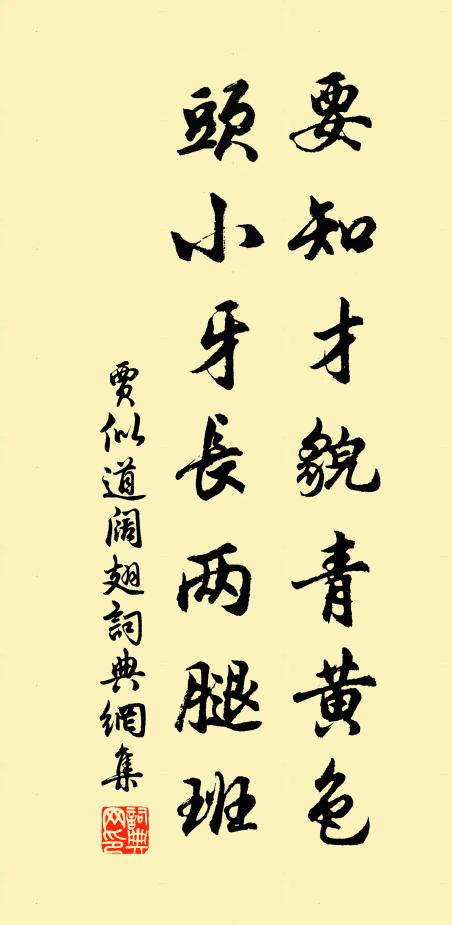 要知才貌青黄色
頭小牙長两腿班
賈似道阔翅詞典網集
詞典网印